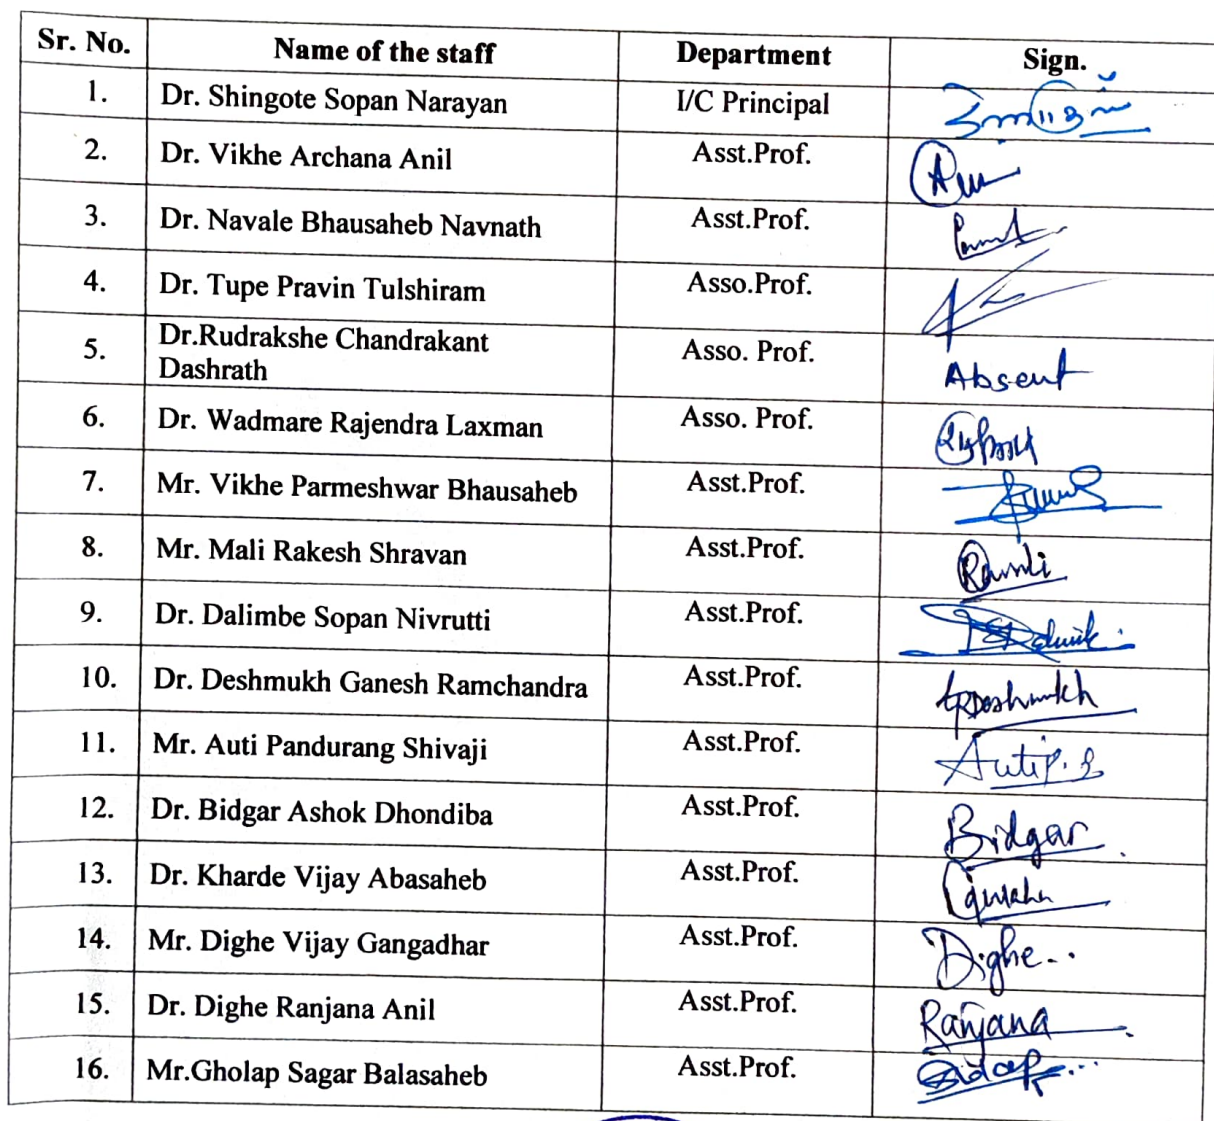 Sr. No. Name of the staff Department Sign.
1. Dr. Shingote Sopan Narayan I/C Principal
2. Dr. Vikhe Archana Anil Asst.Prof.
3. Dr. Navale Bhausaheb Navnath Asst.Prof.
4. Dr. Tupe Pravin Tulshiram Asso.Prof.
5. Dr.Rudrakshe Chandrakant Asso. Prof. Absent
Dashrath
6. Dr. Wadmare Rajendra Laxman Asso. Prof.
7. Mr. Vikhe Parmeshwar Bhausaheb Asst.Prof.
8. Mr. Mali Rakesh Shravan Asst.Prof.
9. Dr. Dalimbe Sopan Nivrutti Asst.Prof.
10. Dr. Deshmukh Ganesh Ramchandra Asst.Prof. GRDeshmukh
11. Mr. Auti Pandurang Shivaji Asst.Prof. Auti P.S
12. Dr. Bidgar Ashok Dhondiba Asst.Prof. Bidgar
13. Dr. Kharde Vijay Abasaheb Asst.Prof.
14. Mr. Dighe Vijay Gangadhar Asst.Prof. Dighe
15. Dr. Dighe Ranjana Anil Asst.Prof. Ranjana
16. Mr.Gholap Sagar Balasaheb Asst.Prof.